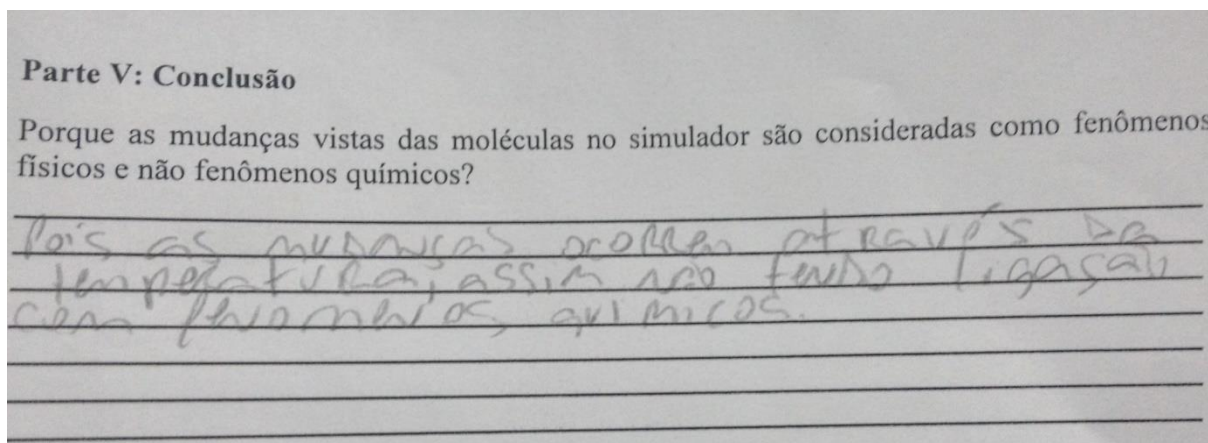 Parte V: Conclusão
Porque as mudanças vistas das moléculas no simulador são consideradas como fenômenos
físicos e não fenômenos químicos?
Pois as mudanças ocorrem através da
temperatura, assim não tendo ligação
com fenomenos quimicos.